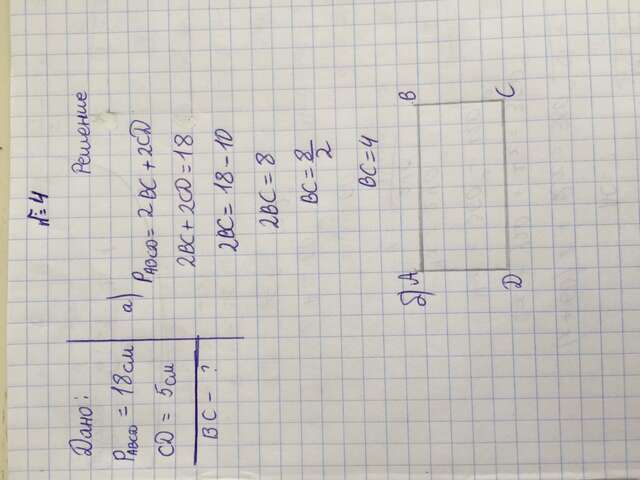 №4
Дано:
P ABCD = 18 см
CD = 5 см
BC - ?
Решение
а) P ABCD = 2BC + 2CD
2BC + 2CD = 18
2BC = 18 - 10
2BC = 8
BC = 8/2
BC = 4
б) A B
D C